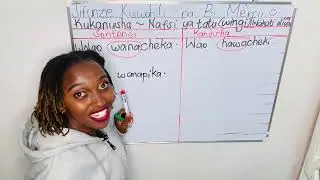 Jifunze Kiswahili na Bi Mercy
Kukanusha ~ Nafsi ya tatu (wingi)
Sentensi Kanusha
Wao wanacheka - Wao hawacheki
wanapika.